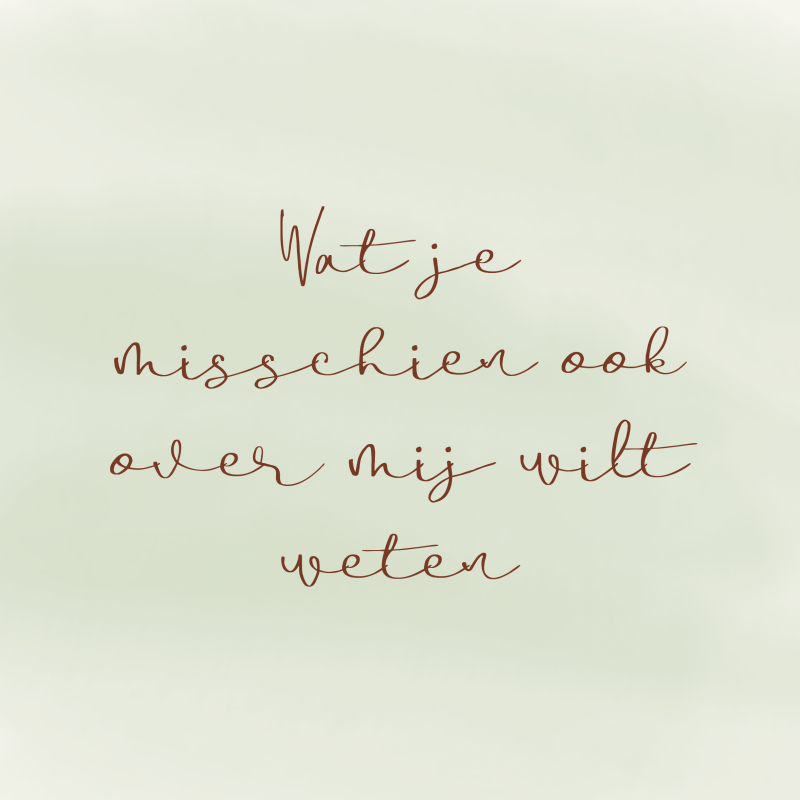 Wat je
misschien ook
over mij wilt
weten